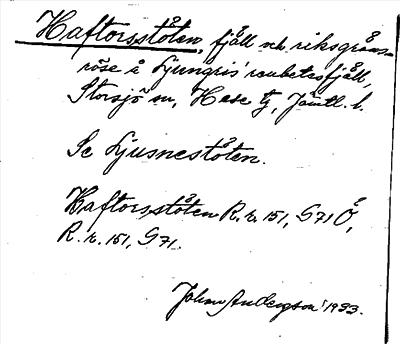 Haftorsstöten, fjäll och riksgräns-
röse å Ljungris' renbetesfjäll,
Storsjö sn, Hede tg, Jämtl. l.
Se Ljusnestöten.
Haftorsstöten R.r. 151, G71 Ö,
R.r. 151, G71.
Johan Anderzon 1933.